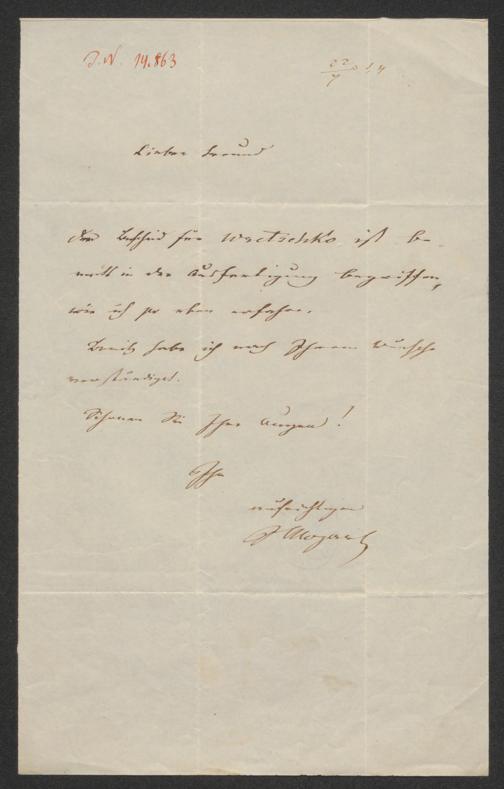 J.N. 14.863
22/7
Lieber Freund
Der Bescheid für Wrtschko ist be-
reits in der Ausfertigung begriffen,
wie ich so eben erfahre.
habe ich nach Ihrem Wunsche
verständiget.
Schonen Sie Ihre Augen!
Ihr
aufrichtiger
J Mozart